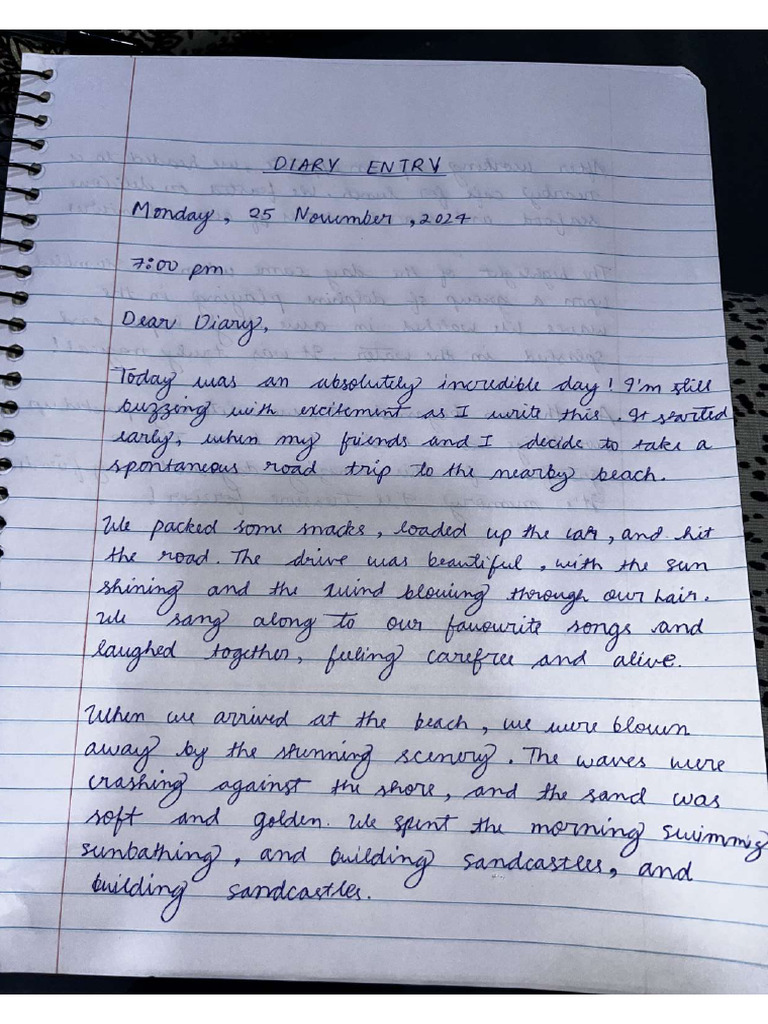 DIARY ENTRY
Monday, 25 November, 2024
7:00 pm
Dear Diary,
Today was an absolutely incredible day! I'm still
buzzing with excitement as I write this. It started
early, when my friends and I decide to take a
spontaneous road trip to the nearby beach.
We packed some snacks, loaded up the car, and hit
the road. The drive was beautiful, with the sun
shining and the wind blowing through our hair.
We sang along to our favourite songs and
laughed together, feeling carefree and alive.
When we arrived at the beach, we were blown
away by the stunning scenery. The waves were
crashing against the shore, and the sand was
soft and golden. We spent the morning swimming
sunbathing, and building sandcastles, and
building sandcastles.